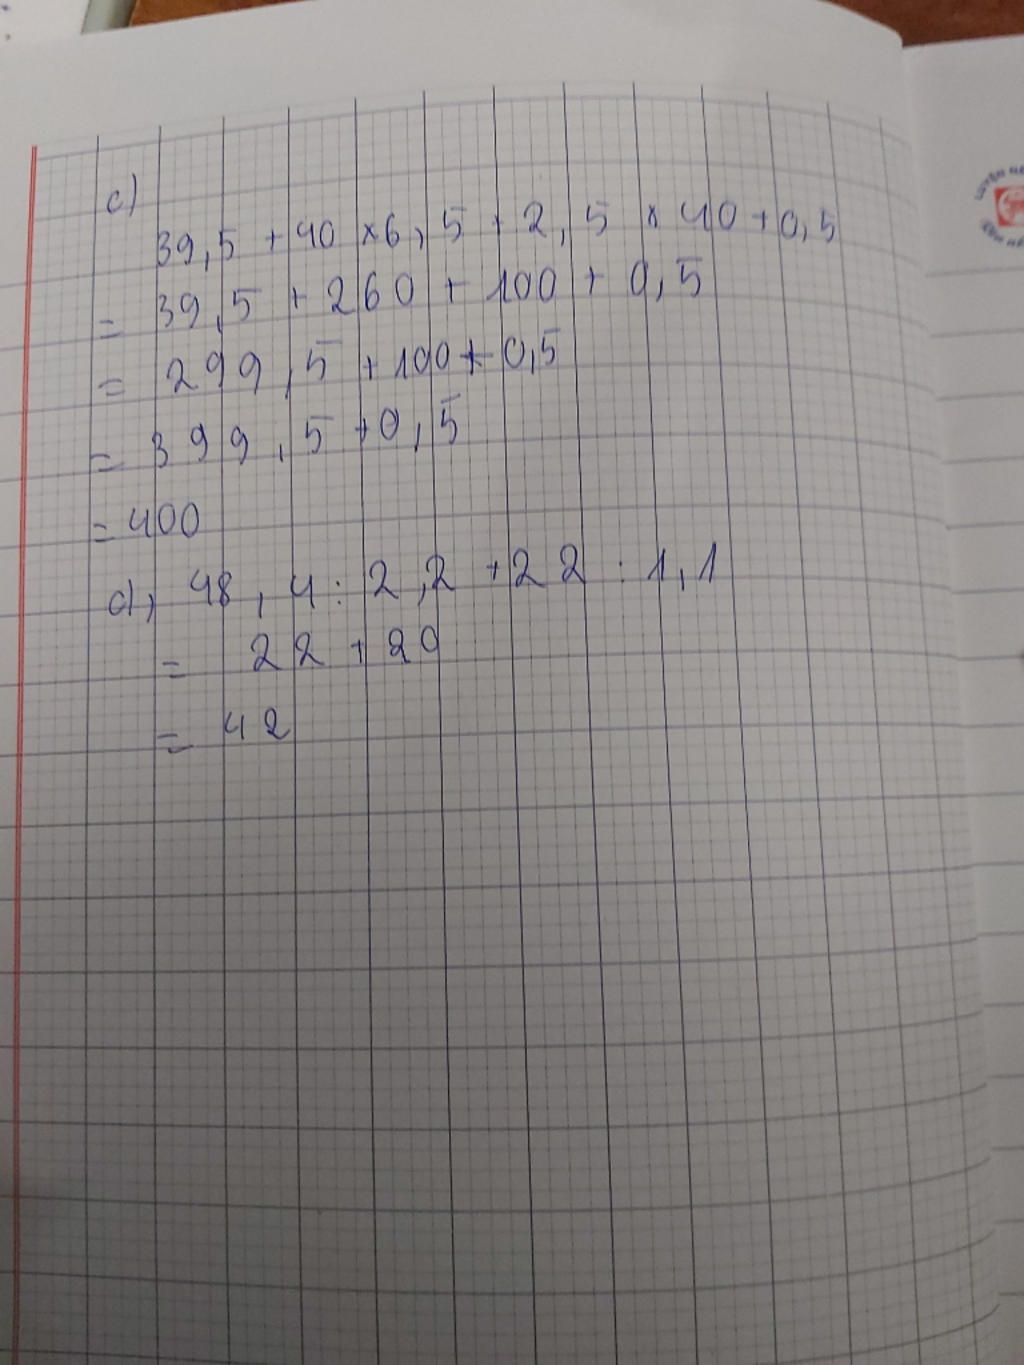 c)
39,5 + 40 × 6,5 + 2,5 × 40 + 0,5
= 39,5 + 260 + 100 + 0,5
= 299,5 + 100 + 0,5
= 399,5 + 0,5
= 400
d), 48,4 : 2,2 + 22 : 1,1
= 22 + 20
= 42